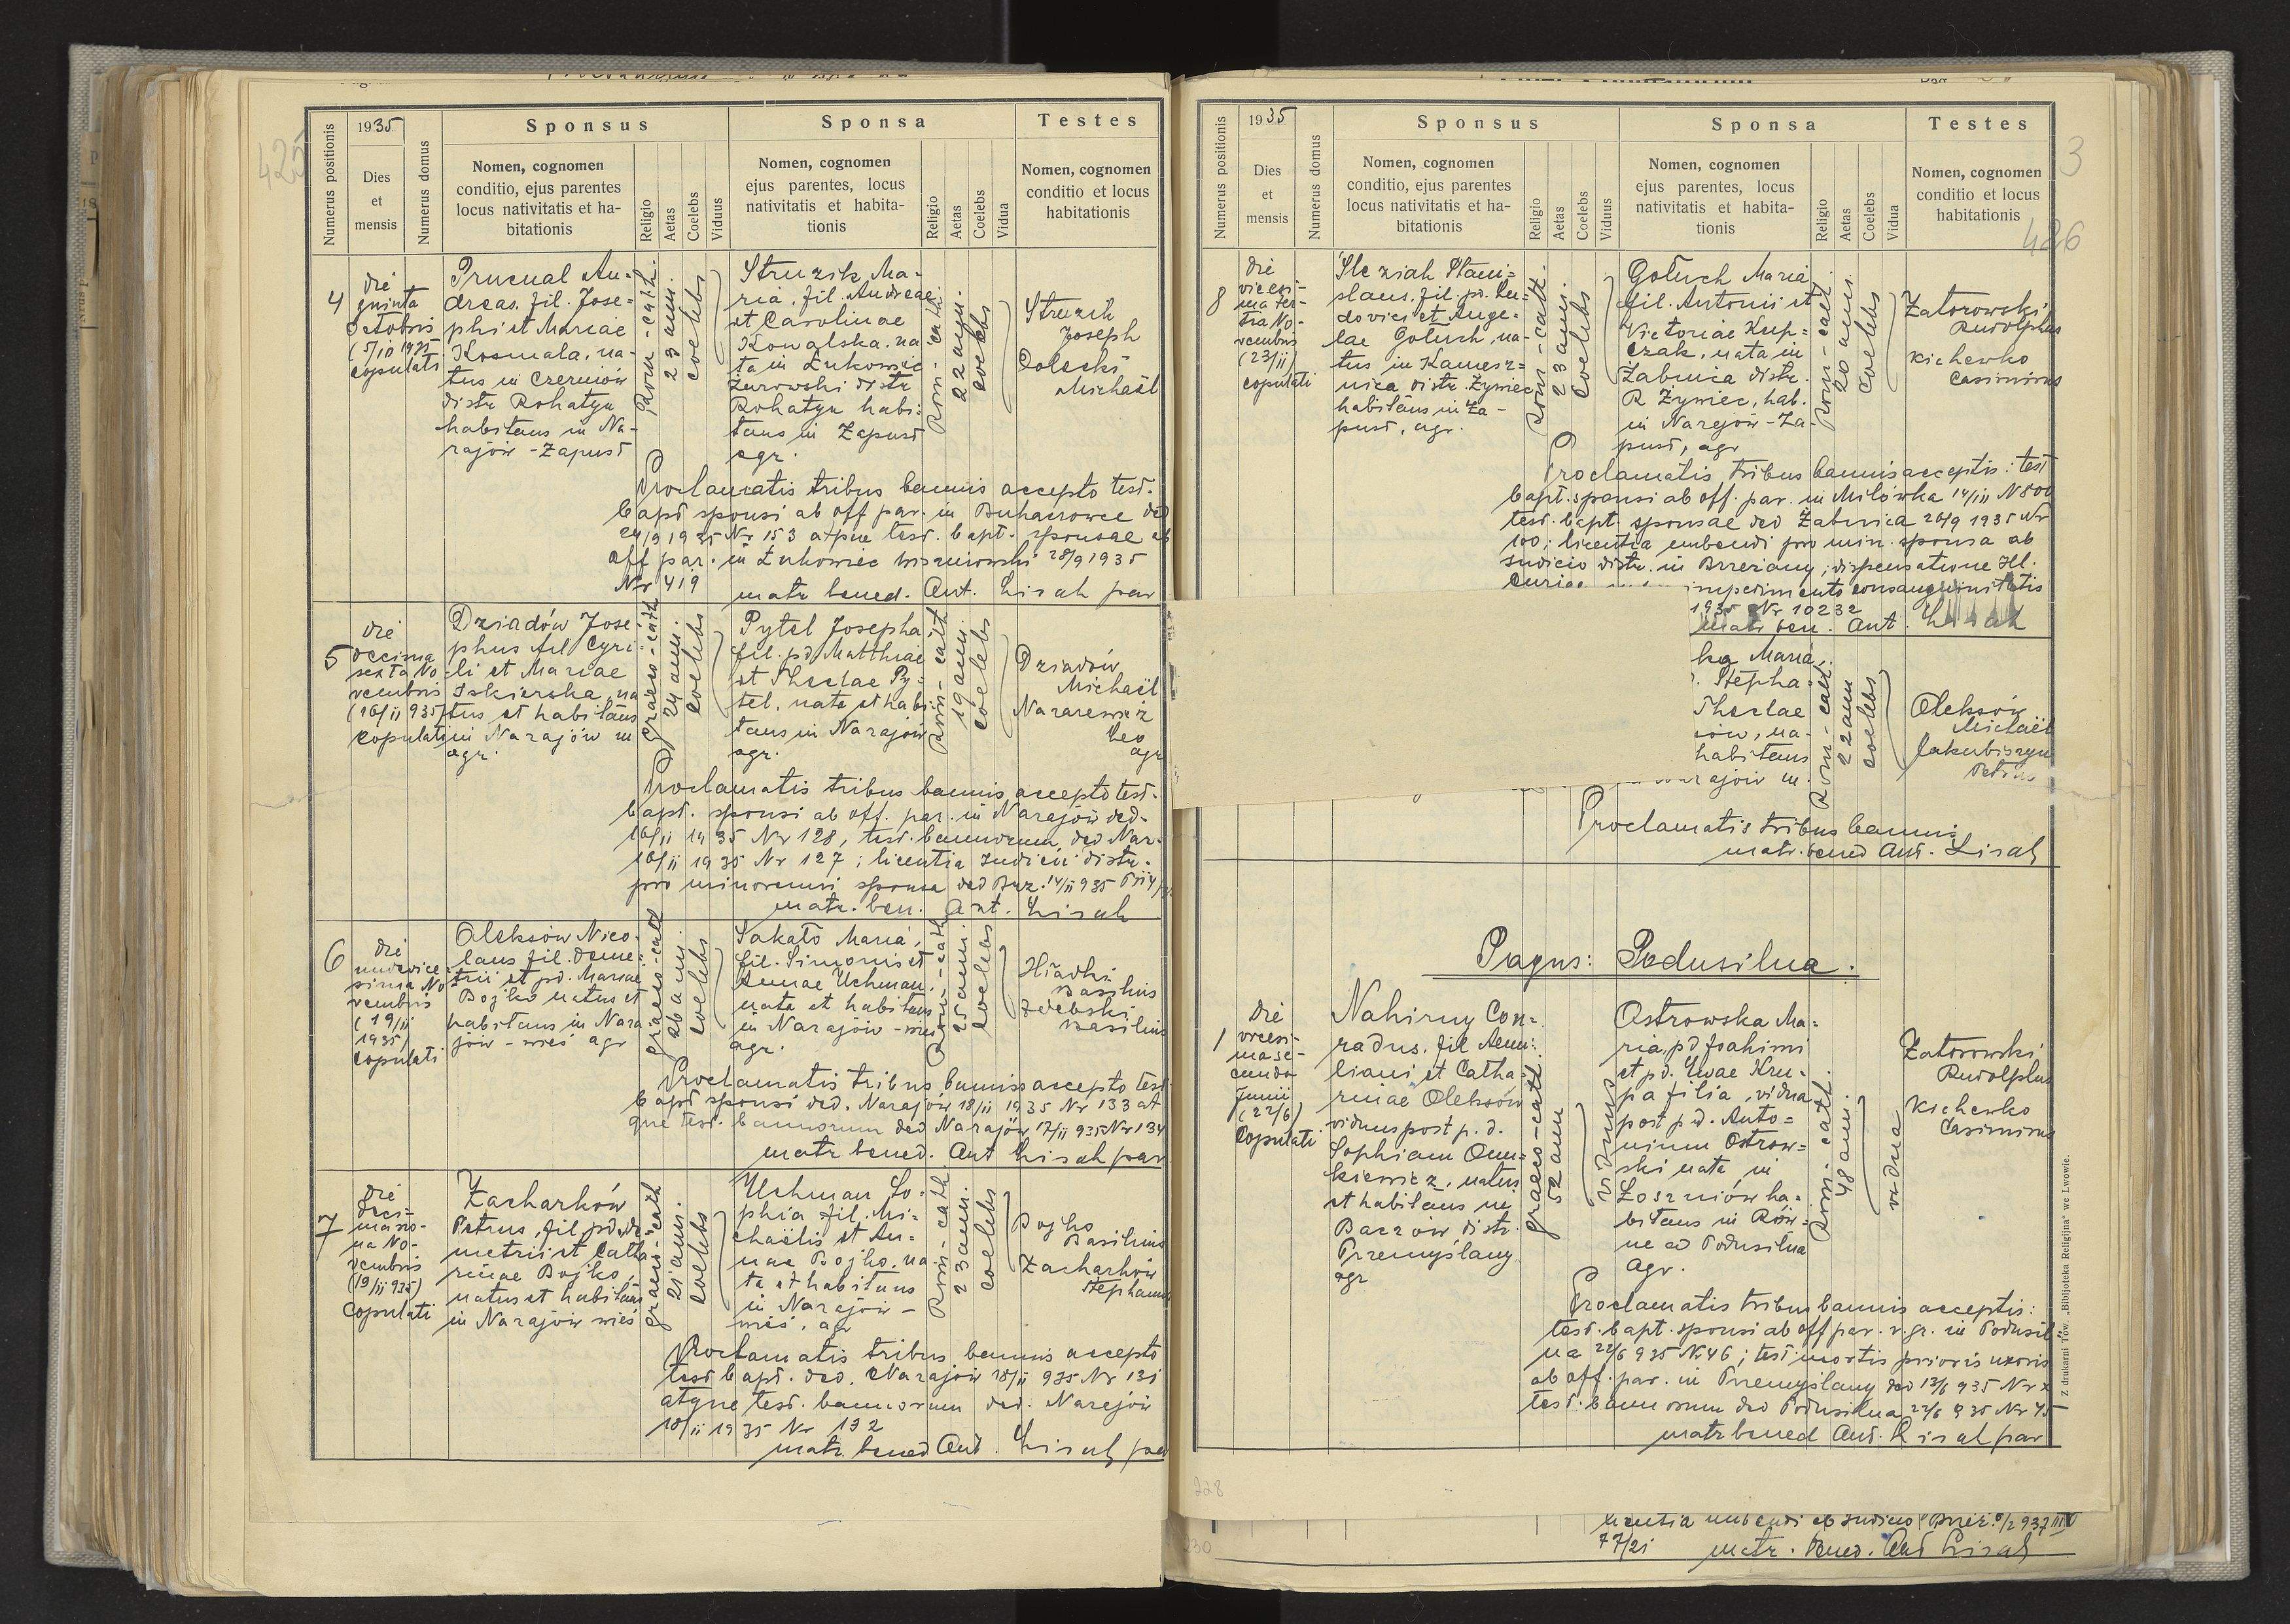 425
Numerus positionis
1935
Dies
et
mensis
Numerus domus
Sponsus
Nomen, cognomen
conditio, ejus parentes
locus nativitatis et ha-
bitationis
Religio
Aetas
Coelebs
Viduus
Sponsa
Nomen, cognomen
ejus parentes, locus
nativitatis et habita-
tionis
Religio
Aetas
Coelebs
Vidua
Testes
Nomen, cognomen
conditio et locus
habitationis
4
die
quinta
Octobris
(5/10 1935
copulati
Prucnal An-
dreas. fil. Jose=
phi et Mariae
Kosmala, na-
tus in Czerniów
distr Rohatyn
habitans in Na-
rajów - Zapust
Rom-cath.
23 ann.
coelebs
Struzik, Ma-
ria, fil. Andreae
et Carolinae
Kowalska. na
ta in Łukowiec
Żurowski distr
Rohatyn habi-
tans in Zapust
agr.
Rom-cath.
22 ann.
coelebs
Struzik
Joseph
Michaël
Proclamatis tribus bannis accepto test.
bapt sponsi ab off par. in Bukaczowce ded
24/9 1935 Nr 153 atque test. bapt. sponsae ab
off par. in Łukowiec wiszniowski 28/9 1935
Nr 419
matr bened. Ant. Lisak par
5
die
decima
sexta No-
vembris
(16/11 935)
copulati
Dziadów Jose
phus fil Cyri-
li et Mariae
Iskierska, na
tus et habitans
in Narajów m
agr.
graeco-cath
24 ann.
coelebs
Pytel Josepha
fil. pd. Matthiae
et Theclae Py-
tel, nata et habi-
tans in Narajów
agr.
Rom-cath
19 ann.
coelebs
Dziadów
Michaël
Nazarewicz
Leo
agr
Proclamatis tribus bannis accepto test.
bapt. sponsi ab off. par. in Narajów ded.
16/11 1935 Nr 128, test. bannorum ded Nar.
16/11 1935 Nr 127; licentia Judicii distr.
pro minorenni sponsa ded Brz. 14/11 935
matr. ben. Ant. Lisak
6
die
undevice-
sima No-
vembris
(19/11
1935)
copulati
Oleksów Nico-
laus fil. Deme-
trii et pd. Mariae
Bojko natus et
habitans in Nara
jów - wieś agr
graeco-cath
26 ann.
coelebs
Sakało Maria,
fil. Simonis et
Annae Uchman.
nata et habitans
in Narajów - wieś
agr.
Rom-cath
25 ann.
coelebs
Basilius
Basilius
Proclamatis tribus bannis accepto test
bapt sponsi ded. Narajów 18/11 1935 Nr 133 at
que test. bannorum ded Narajów 17/11 935 Nr 134
matr bened. Ant Lisak par
7
die
deci-
ma no-
na No-
vembris
(19/11 935)
copulati
Zacharków
Petrus, fil. pd. De
metrii et Catha
rinae Bojko,
natus et habitans
in Narajów wieś
graeco-cath
21 ann.
coelebs
Uchman So-
phia fil. Mi-
chaëlis et An-
nae Bojko, na-
ta et habitans
in Narajów -
wieś, agr
Rom-cath
23 ann.
coelebs
Bojko
Basilius
Zacharków
Stephanus
Proclamatis tribus bannis accepto
test bapt. ded. Narajów 18/11 935 Nr 131
atque test. bannorum ded. Narajów
18/11 1935 Nr 132
matr. bened Ant. Lisak par
3
426
Numerus positionis
1935
Dies
et
mensis
Numerus domus
Sponsus
Nomen, cognomen
conditio, ejus parentes
locus nativitatis et ha-
bitationis
Religio
Aetas
Coelebs
Viduus
Sponsa
Nomen, cognomen
ejus parentes, locus
nativitatis et habita-
tionis
Religio
Aetas
Coelebs
Vidua
Testes
Nomen, cognomen
conditio et locus
habitationis
8
die
vicesi-
ma ter-
tia No-
vembris
(23/11)
copulati
Śleziak Stani=
slaus, fil. pd. Lu=
dovici et Ange=
lae Gołuch, na-
tus in Kamesz=
nica distr. Żywiec
habitans in Za-
pust, agr.
Rom-cath.
23 ann.
coelebs
Gołuch Maria
fil. Antonii et
Victoriae Kup=
czak, nata in
Żabnica distr.
Żywiec, hab.
in Narajów - Za-
pust, agr
Rom-cath.
20 ann.
coelebs
Zatorowski
Rudolphus
Kichewko
Casimirus
Proclamatis tribus bannis acceptis: test
bapt. sponsi ab off. par. in Milówka 14/11 N 800
test. bapt. sponsae ded Żabnica 26/9 1935 Nr
100; licentia nubendi pro min. sponsa ab
Judicio distr. in Brzeżany, dispensatione Ill.
Curiae
impedimento consanguinitatis
1935 Nr 10232
matr ben. Ant. Lisak
ka Maria,
. Stepha-
Theclae
iów, na-
habitans
rajów m.
Rom-cath
22 ann
coelebs
Oleksów
Michaël
Jakubiszyn
Petrus
Proclamatis tribus bannis
matr. bened Ant. Lisak
Pagus: Podusilna.
1
die
vicesi-
ma se-
cunda
Junii
(22/6)
copulati
Nahirny Con-
radus. fil Aemi-
liani et Catha-
rinae Oleksów
viduus post p. d.
Sophiam
kiewicz, natus
et habitans in
Baczów distr.
Przemyślany
agr
graeco-cath.
52 ann
viduus
Ostrowska Ma=
ria, pd Joahimi
et pd. Evae Kru-
pa filia, vidua
post p d. Anto=
nium Ostrow=
ski nata in
Łoszniów ha=
bitans in Rów=
ne ad Podusilna
agr.
Rom-cath.
48 ann.
vidua
Zatorowski
Rudolphus
Kichewko
Casimirus
Proclamatis tribus bannis acceptis:
test. bapt. sponsi ab off par. r. gr. in Podusil=
na 22/6 935 Nr 46; test mortis prioris uxoris
ab off. par. in Przemyślany ded 13/6 935 Nr x
test. bannorum ded Podusilna 22/6 935 Nr 45
matr bened Ant. Lisak par
Z drukarni Tow. „Bibljoteka Religijna” we Lwowie.
228
230
licentia nubendi ab Judicio Brzeż.
77/21
matr. Bened. Ant Lisak